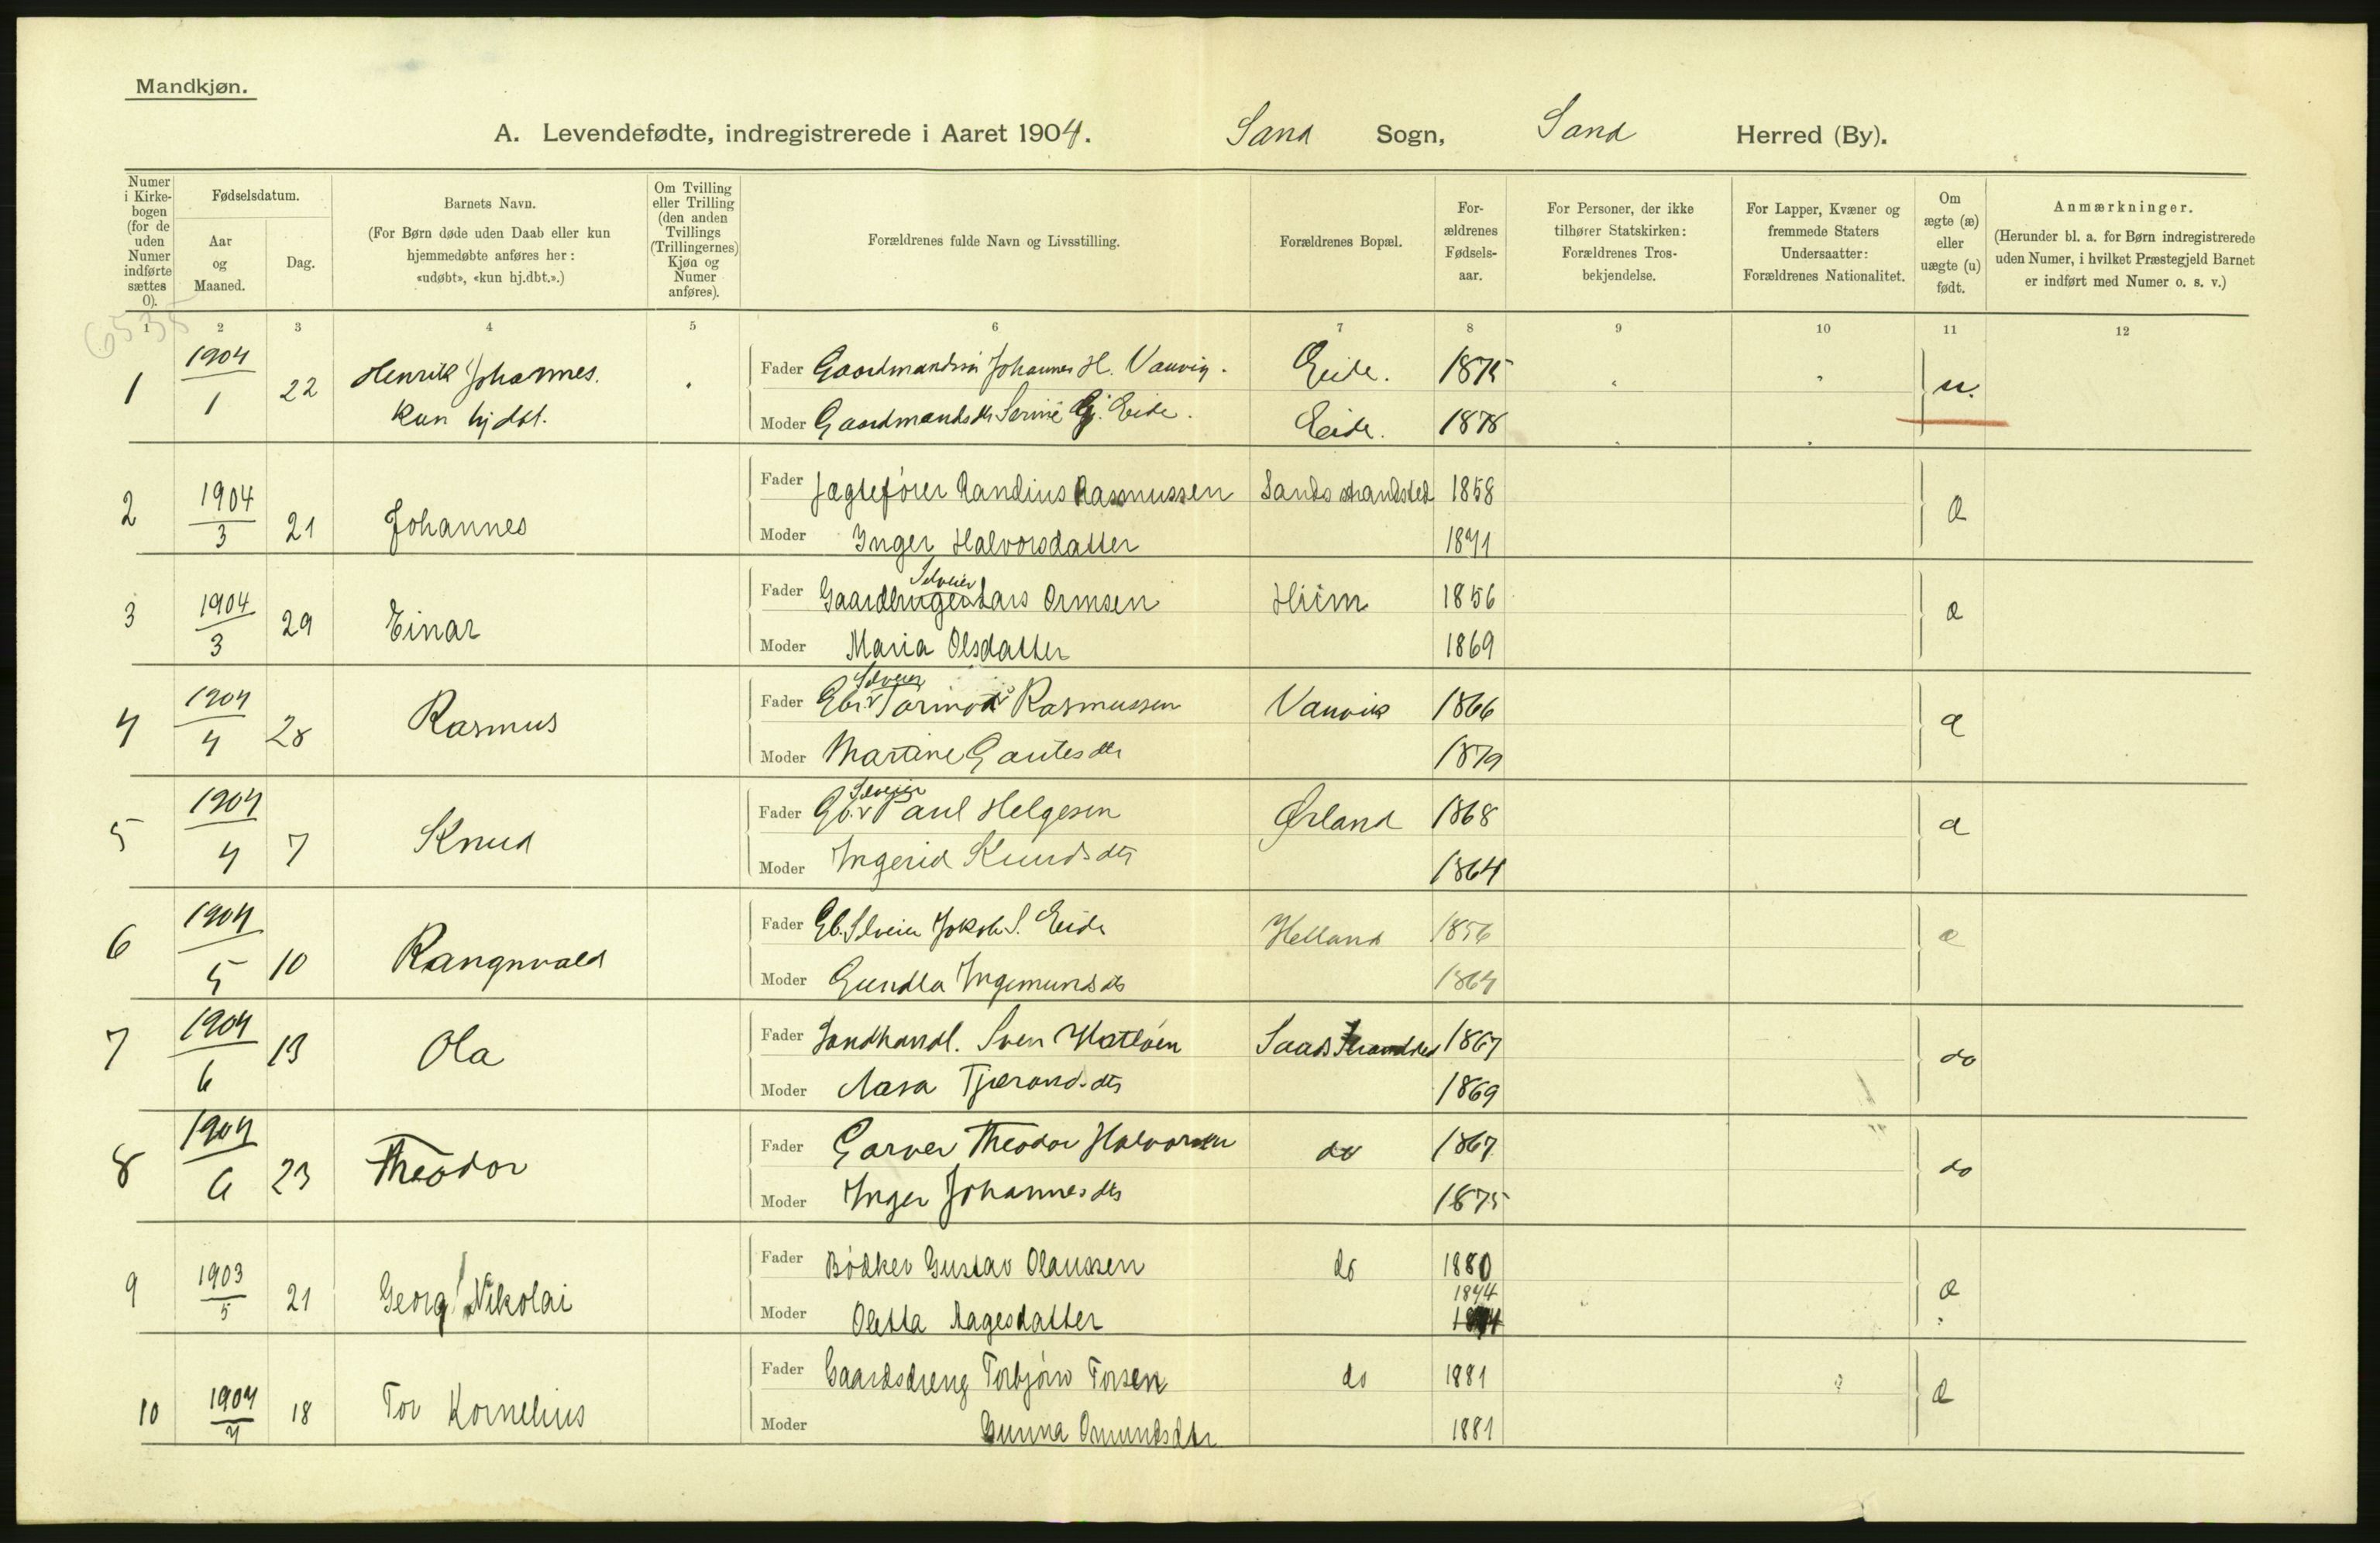 Mandkjøn.
A. Levendefødte, indregistrerede i Aaret 1904. Sand Sogn, Sand Herred (By).
Numer i Kirkebogen (for de uden Numer indførte sættes 0).
Fødselsdatum.
Aar og Maaned.
Dag.
Barnets Navn.
(For Børn døde uden Daab eller kun hjemmedøbte anføres her: «udøbt», «kun hj.dbt.».)
Om Tvilling eller Trilling (den anden Tvillings (Trillingernes) Kjøn og Numer anføres).
Forældrenes fulde Navn og Livsstilling.
Forældrenes Bopæl.
Forældrenes Fødselsaar.
For Personer, der ikke tilhører Statskirken: Forældrenes Trosbekjendelse.
For Lapper, Kvæner og fremmede Staters Undersaatter: Forældrenes Nationalitet.
Om ægte (æ) eller uægte (u) født.
Anmærkninger.
(Herunder bl. a. for Børn indregistrerede uden Numer, i hvilket Præstegjeld Barnet er indført med Numer o. s. v.)
1 2 3 4 5 6 7 8 9 10 11 12
1 1904/1 22 Henrik Johannes. Fader Johannes H. Vanvig. Eide. 1875 u.
kun hjdbt. Moder Gaardmandsdtr Serine Gj. Eide. Eide. 1878
2 1904/3 21 Johannes Fader Jægtefører Randius Rasmussen Sands strandsted 1858 æ
Moder Inger Halvorsdatter 1871
3 1904/3 29 Einar Fader Gaardbruger Selveier Lars Ormsen Hiim 1856 æ
Moder Maria Olsdatter 1869
4 1904/4 28 Rasmus Fader Gbr. Selveier Tormod Rasmussen Vanvik 1866 æ
Moder Martine Gautesdtr 1879
5 1904/4 7 Knud Fader Gb. Selveier Paul Helgesen Ørland 1868 æ
Moder Ingerid Knudsdtr 1864
6 1904/5 10 Rangnvald Fader Gb. Selveier Jakob S. Eide Helland 1856 æ
Moder Gundla Ingemundsdtr 1864
7 1904/6 13 Ola Fader Landhandl. Sven Sands Strandsted 1867 do
Moder Aasa Tjerandsdtr 1869
8 1904/6 23 Theodor Fader Garver Theodor Halvorsen do 1867 do
Moder Inger Johannesdtr 1875
9 1903/5 21 Georg Nikolai Fader Bødker Gustav Olaussen do 1880 æ
Moder Oletta Aagesdatter 1874
10 1904/4 18 Tor Kornelius Fader Gaardsdreng Torbjørn Torsen do 1881 æ
Moder Gunna Omundsdtr 1881